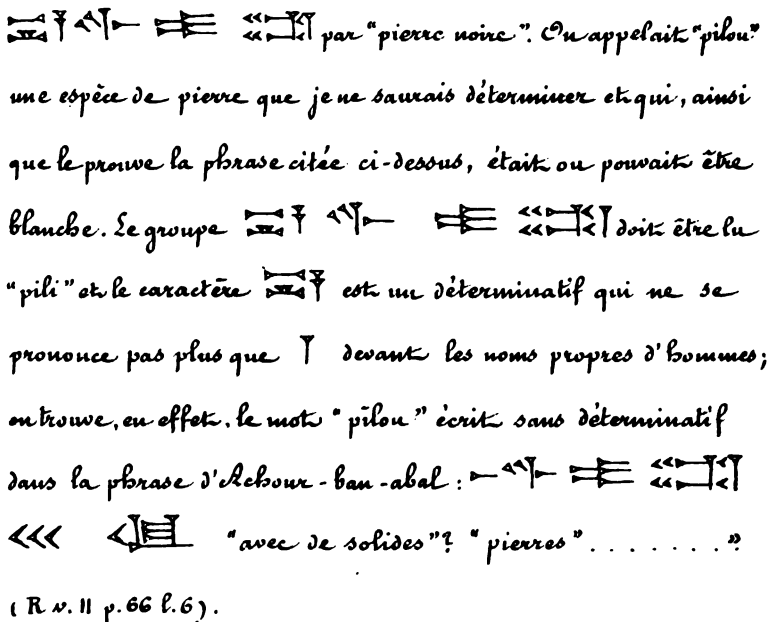 par “pierre noire”. On appelait “pilou”
une espèce de pierre que je ne saurais déterminer et qui, ainsi
que le prouve la phrase citée ci-dessus, était ou pouvait être
blanche. Le groupe doit être lu
“pili” et le caractère est un déterminatif qui ne se
prononce pas plus que 𒁹 devant les noms propres d'hommes;
on trouve, en effet, le mot “pilou” écrit sans déterminatif
dans la phrase d'Achour-ban-abal :
“avec de solides”? “pierres” . . . . . . . ”
(R v. II p. 66 l. 6).